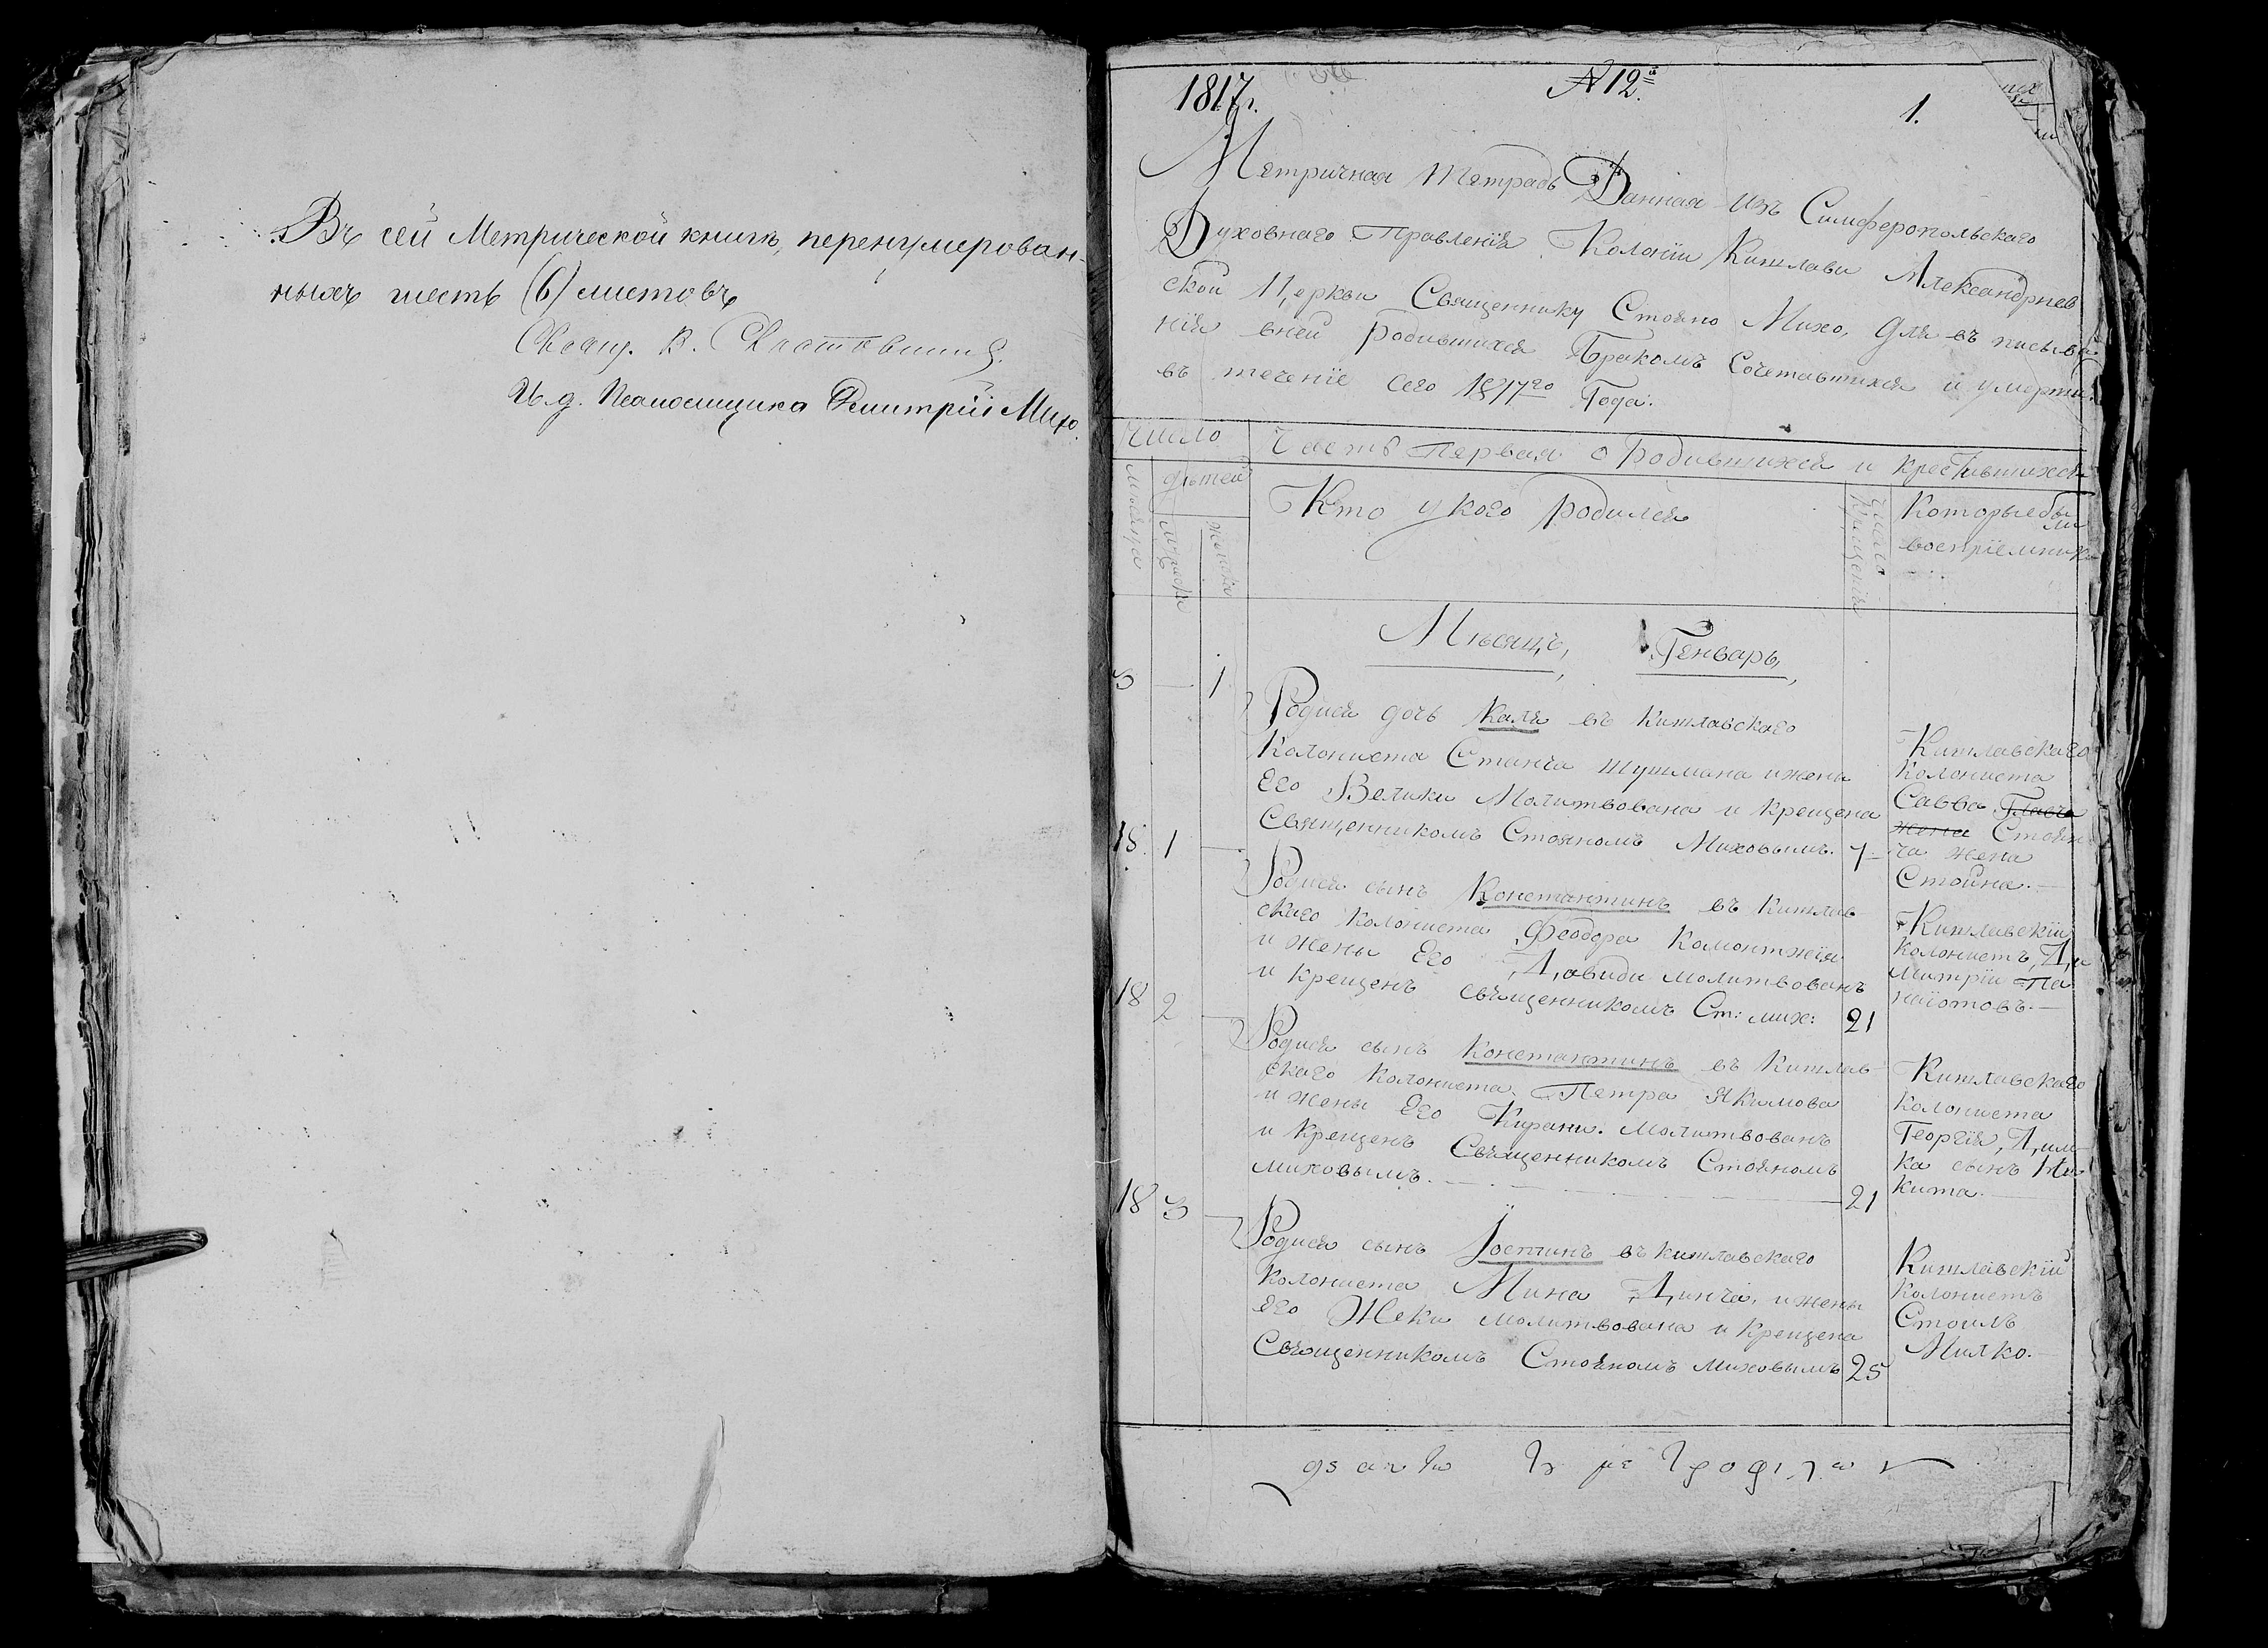 Въ сей Метрической книгѣ, перенумерован-
ныхъ шесть (6) листовъ
Свящ. В.
И. д. Псаломщика Димитрій Михо.
1817 г.
№ 12.й
1.
Метричная тетрадь Данная изъ Симферопольскаго
Духовнаго Правленія Колоніи Кишлави Александрнев
ской Церкви Священнику Стояно Михо, для въ писыва
нія вней Родившихся Бракомъ Сочетавшихся и умерши:
въ теченіе Сего 1817го Года.
Число
Часть Первая о Родившихся и крестившихся
мѣсяца
дѣтей
мужеска
женска
Кто у кого родился
число крещенія
Которые бы
ли
воспріемники
Мѣсяцъ, Генварь,
3 — 1
Родися дочь Каля въ Кишлавскаго
Колониста Станча Шушмана и жены
Его Велики Молитвована и крещена
Священникомъ Стояномъ Миховымъ. 7
Кишлавскаго
Колониста
Савва Главча
жена Стоян
ча жена
Стойна.—
18 1 —
Родися сынъ Константинъ въ Кишлав
скаго колониста Феодора Комонтжія
и жены Его Давиди молитвованъ
и крещенъ священникомъ Ст: мих: 21
Кишлавскій
колонистъ, Ди
митрій Па
наіотовъ.—
18 2 —
Родися сынъ Константинъ въ Кишлав
скаго Колониста Петра Якимова
и жены Его Кирани. молитвованъ
и крещенъ Священникомъ Стояномъ
миховымъ. — 21
Кишлавскаго
колониста
Георгія, Дим
ка сынъ Ни
кита.
18 3 —
Родися сынъ Іостинъ въ кишлавскаго
колониста Мина Динча, и жены
его Жеки молитвована и крещена
Священникомъ Стояномъ миховымъ 25
Кишлавскій
колонистъ
Стоилъ
Милко.